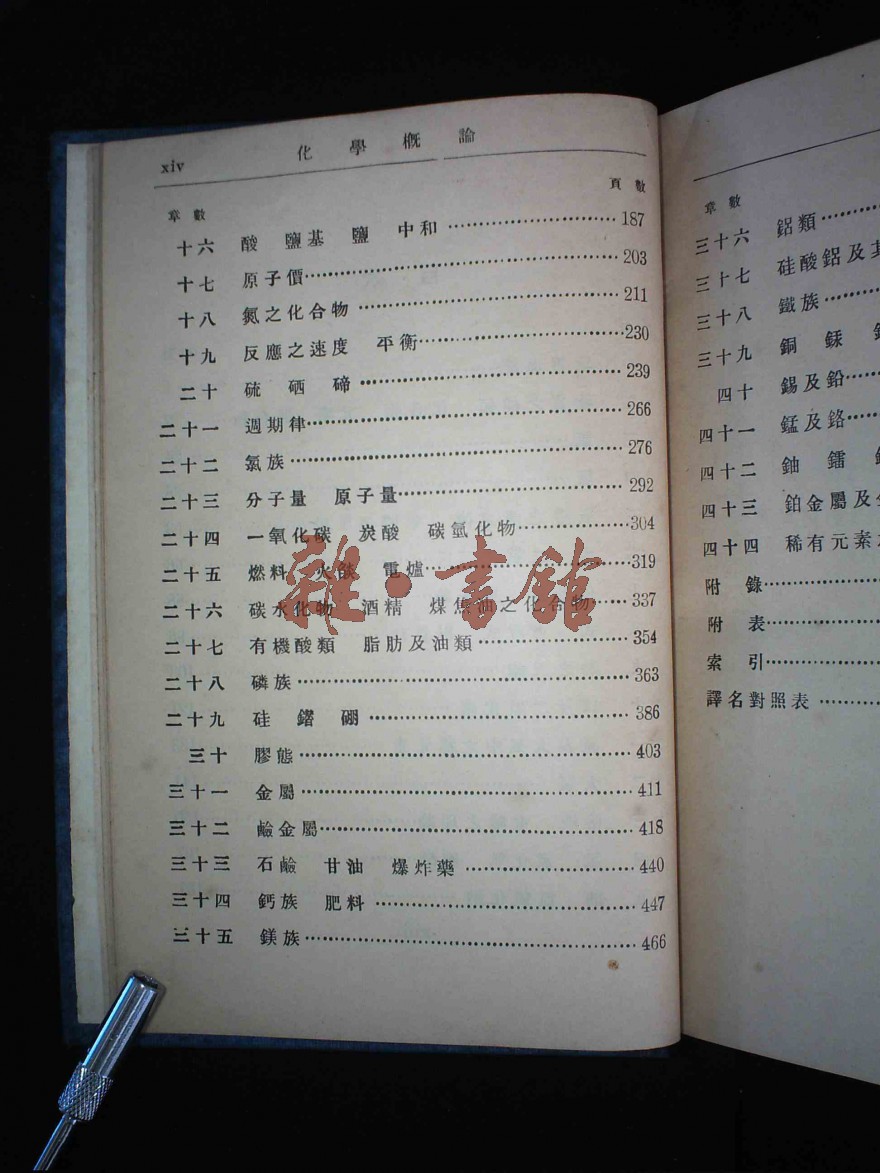 xiv 化學概論
章數 頁數
十六 酸 鹽基 鹽 中和 187
十七 原子價 203
十八 氮之化合物 211
十九 反應之速度 平衡 230
二十 硫 硒 碲 239
二十一 週期律 266
二十二 氯族 276
二十三 分子量 原子量 292
二十四 一氧化碳 炭酸 碳氫化物 304
二十五 燃料 火燄 電爐 319
二十六 碳水化物 酒精 煤焦油之化合物 337
二十七 有機酸類 脂肪及油類 354
二十八 磷族 363
二十九 硅 硼 386
三十 膠態 403
三十一 金屬 411
三十二 鹼金屬 418
三十三 石鹼 甘油 爆炸藥 440
三十四 鈣族 肥料 447
三十五 鎂族 466
雜·書館
章數
三十六 鋁類
三十七 硅酸鋁及其
三十八 鐵族
三十九 銅
四十 錫及鉛
四十一 錳及鉻
四十二 鈾 鐳
四十三 鉑金屬及
四十四 稀有元素
附錄
附表
索引
譯名對照表